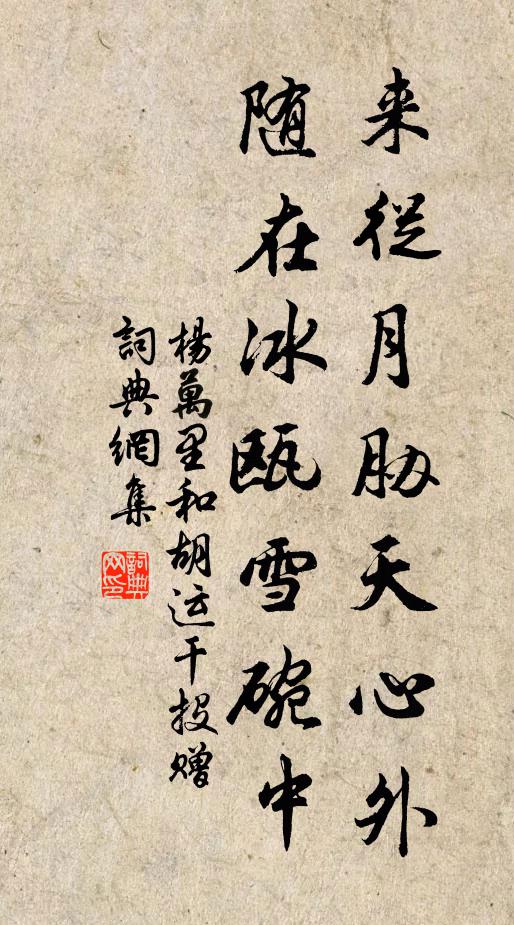 来從月胁天心外
随在冰瓯雪碗中
楊萬里和胡运干投赠
詞典網集
詞典
网印